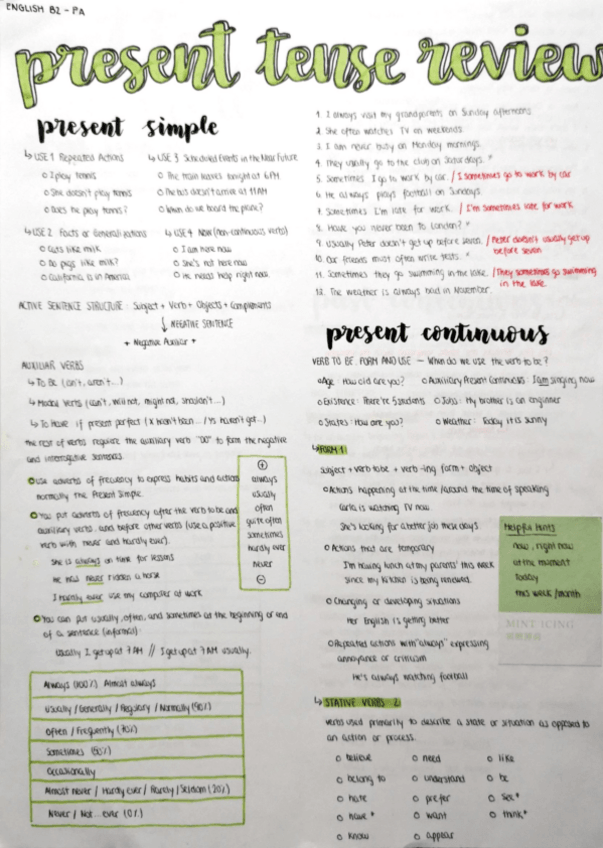 ENGLISH B2 - PA
present tense review
present simple
↳ USE 1 Repeated Actions
o I play tennis
o She doesn't play tennis
o Does he play tennis?
↳ USE 3 Scheduled Events in the Near Future
o The train leaves tonight at 6PM
o The bus doesn't arrive at 11AM
o When do we board the plane?
↳ USE 2 Facts or Generalizations
o Cats like milk
o Do pigs like milk?
o California is in America
↳ USE 4 Now (non-continuous verbs)
o I am here now
o She's not here now
o He needs help right now.
ACTIVE SENTENCE STRUCTURE: Subject + Verb + Objects + Complements
↓ NEGATIVE SENTENCE
+ Negative Auxiliar +
AUXILIAR VERBS
↳ To Be (isn't, aren't...)
↳ Modal verbs (can't, will not, might not, shouldn't...)
↳ To Have if present perfect
The rest of verbs require the auxiliary verb "DO" to form the negative
and interrogative sentences.
o Use adverbs of frequency to express habits and actions
normally the Present Simple.
o You put adverbs of frequency after the verb to be and
auxiliary verbs, and before other verbs (use a positive
verb with never and hardly ever).
She is always on time for lessons
He has never ridden a horse
I hardly ever use my computer at work
(+)
always
usually
often
quite often
sometimes
hardly ever
never
(-)
o You can put usually, often, and sometimes at the beginning or end
of a sentence (informal):
Usually I get up at 7AM // I get up at 7AM usually.
Always (100%) Almost always
Usually / Generally / Regulary / Normally (90%)
Often / Frequently (70%)
Sometimes (50%)
Occasionally
Almost never / Hardy ever / Rarely / Seldom (20%)
Never / Not... ever (0%)
1. I always visit my grandparents on Sunday afternoons.
2. She often watches TV on weekends.
3. I am never busy on Monday mornings.
4. They usually go to the club on Saturdays. *
5. Sometimes I go to work by car. / I sometimes go to work by car
6. He always plays football on Sundays.
7. Sometimes I'm late for work. / I'm sometimes late for work
8. Have you never been to London? *
9. Usually Peter doesn't get up before seven. / Peter doesn't usually get up
before seven
10. Our friends must often write tests. *
11. Sometimes they go swimming in the lake. / They sometimes go swimming
in the lake.
12. The weather is always bad in November.
present continuous
VERB TO BE. FORM AND USE — When do we use the verb to be?
o Age: How old are you?
o Auxiliary Present Continuous: I am singing now
o Existence: There're 5 students
o Jobs: My brother is an enginner
o States: How are you?
o Weather: Today it is sunny
↳ FORM 1:
Subject + verb to be + verb -ing form + object
o Actions happening at the time /around the time of speaking
Carla is watching TV now
She's looking for a better job these days
o Actions that are temporary
I'm having lunch at my parents' this week
since my kitchen is being renewed.
o Changing or developing situations
Her English is getting better
o Repeated actions with "always" expressing
annoyance or criticism
He's always watching football
Helpful hints
now, right now
at the moment
today
this week /month
MINT ICING
↳ STATIVE VERBS 2:
Verbs used primarily to describe a state or situation as opposed to
an action or process.
o believe
o belong to
o hate
o have *
o know
o need
o understand
o prefer
o want
o appear
o like
o be
o see*
o think*